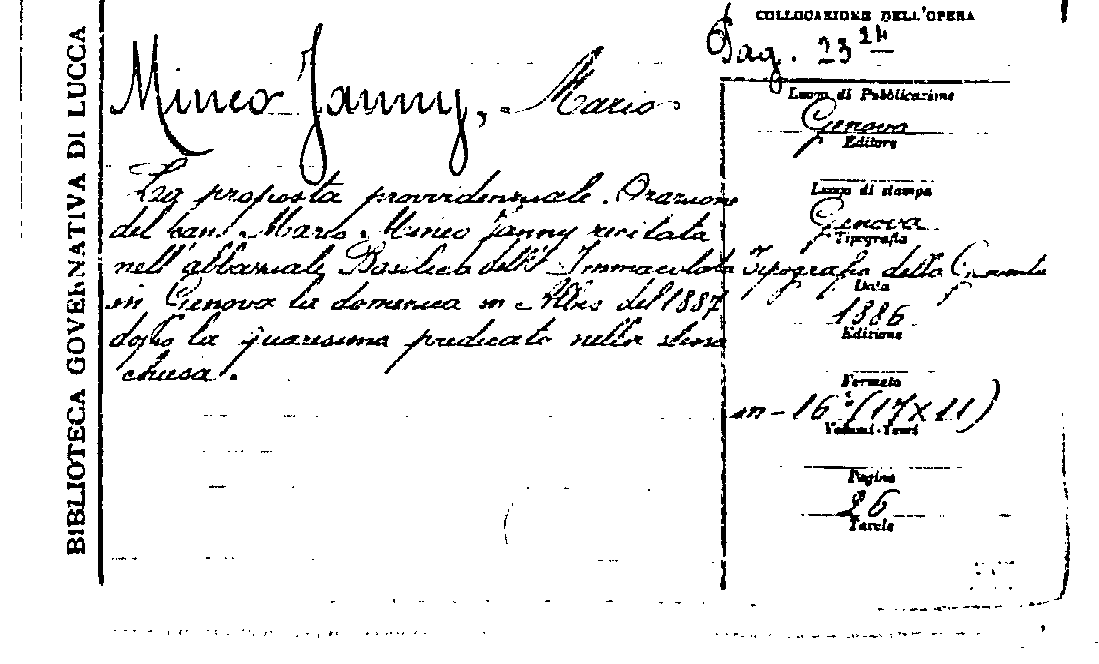 BIBLIOTECA GOVERNATIVA DI LUCCA
COLLOCAZIONE DELL'OPERA
Pag. 23 24
Mineo Janny, Mario
La proposta provvidenziale. Orazione
del can. Mario Mineo Janny recitata
nell'abbaziale Basilica dell'Immacolata
in Genova la domenica in Albis del 1887
dopo la quaresima predicata nella stessa
chiesa.
Luogo di Pubblicazione
Genova
Editore
Luogo di stampa
Genova
Tipografia
Tipografia della Gioventù
Data
1886
Edizione
Formato
in-16° (17x11)
Volumi-Tomi
Pagine
26
Tavole